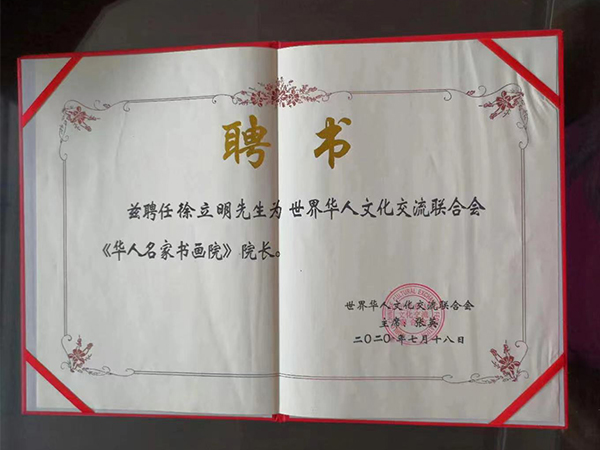 聘书
兹聘任徐立明先生为世界华人文化交流联合会
《华人名家书画院》院长。
世界华人文化交流联合会
主席：张英
二〇二〇年七月十八日